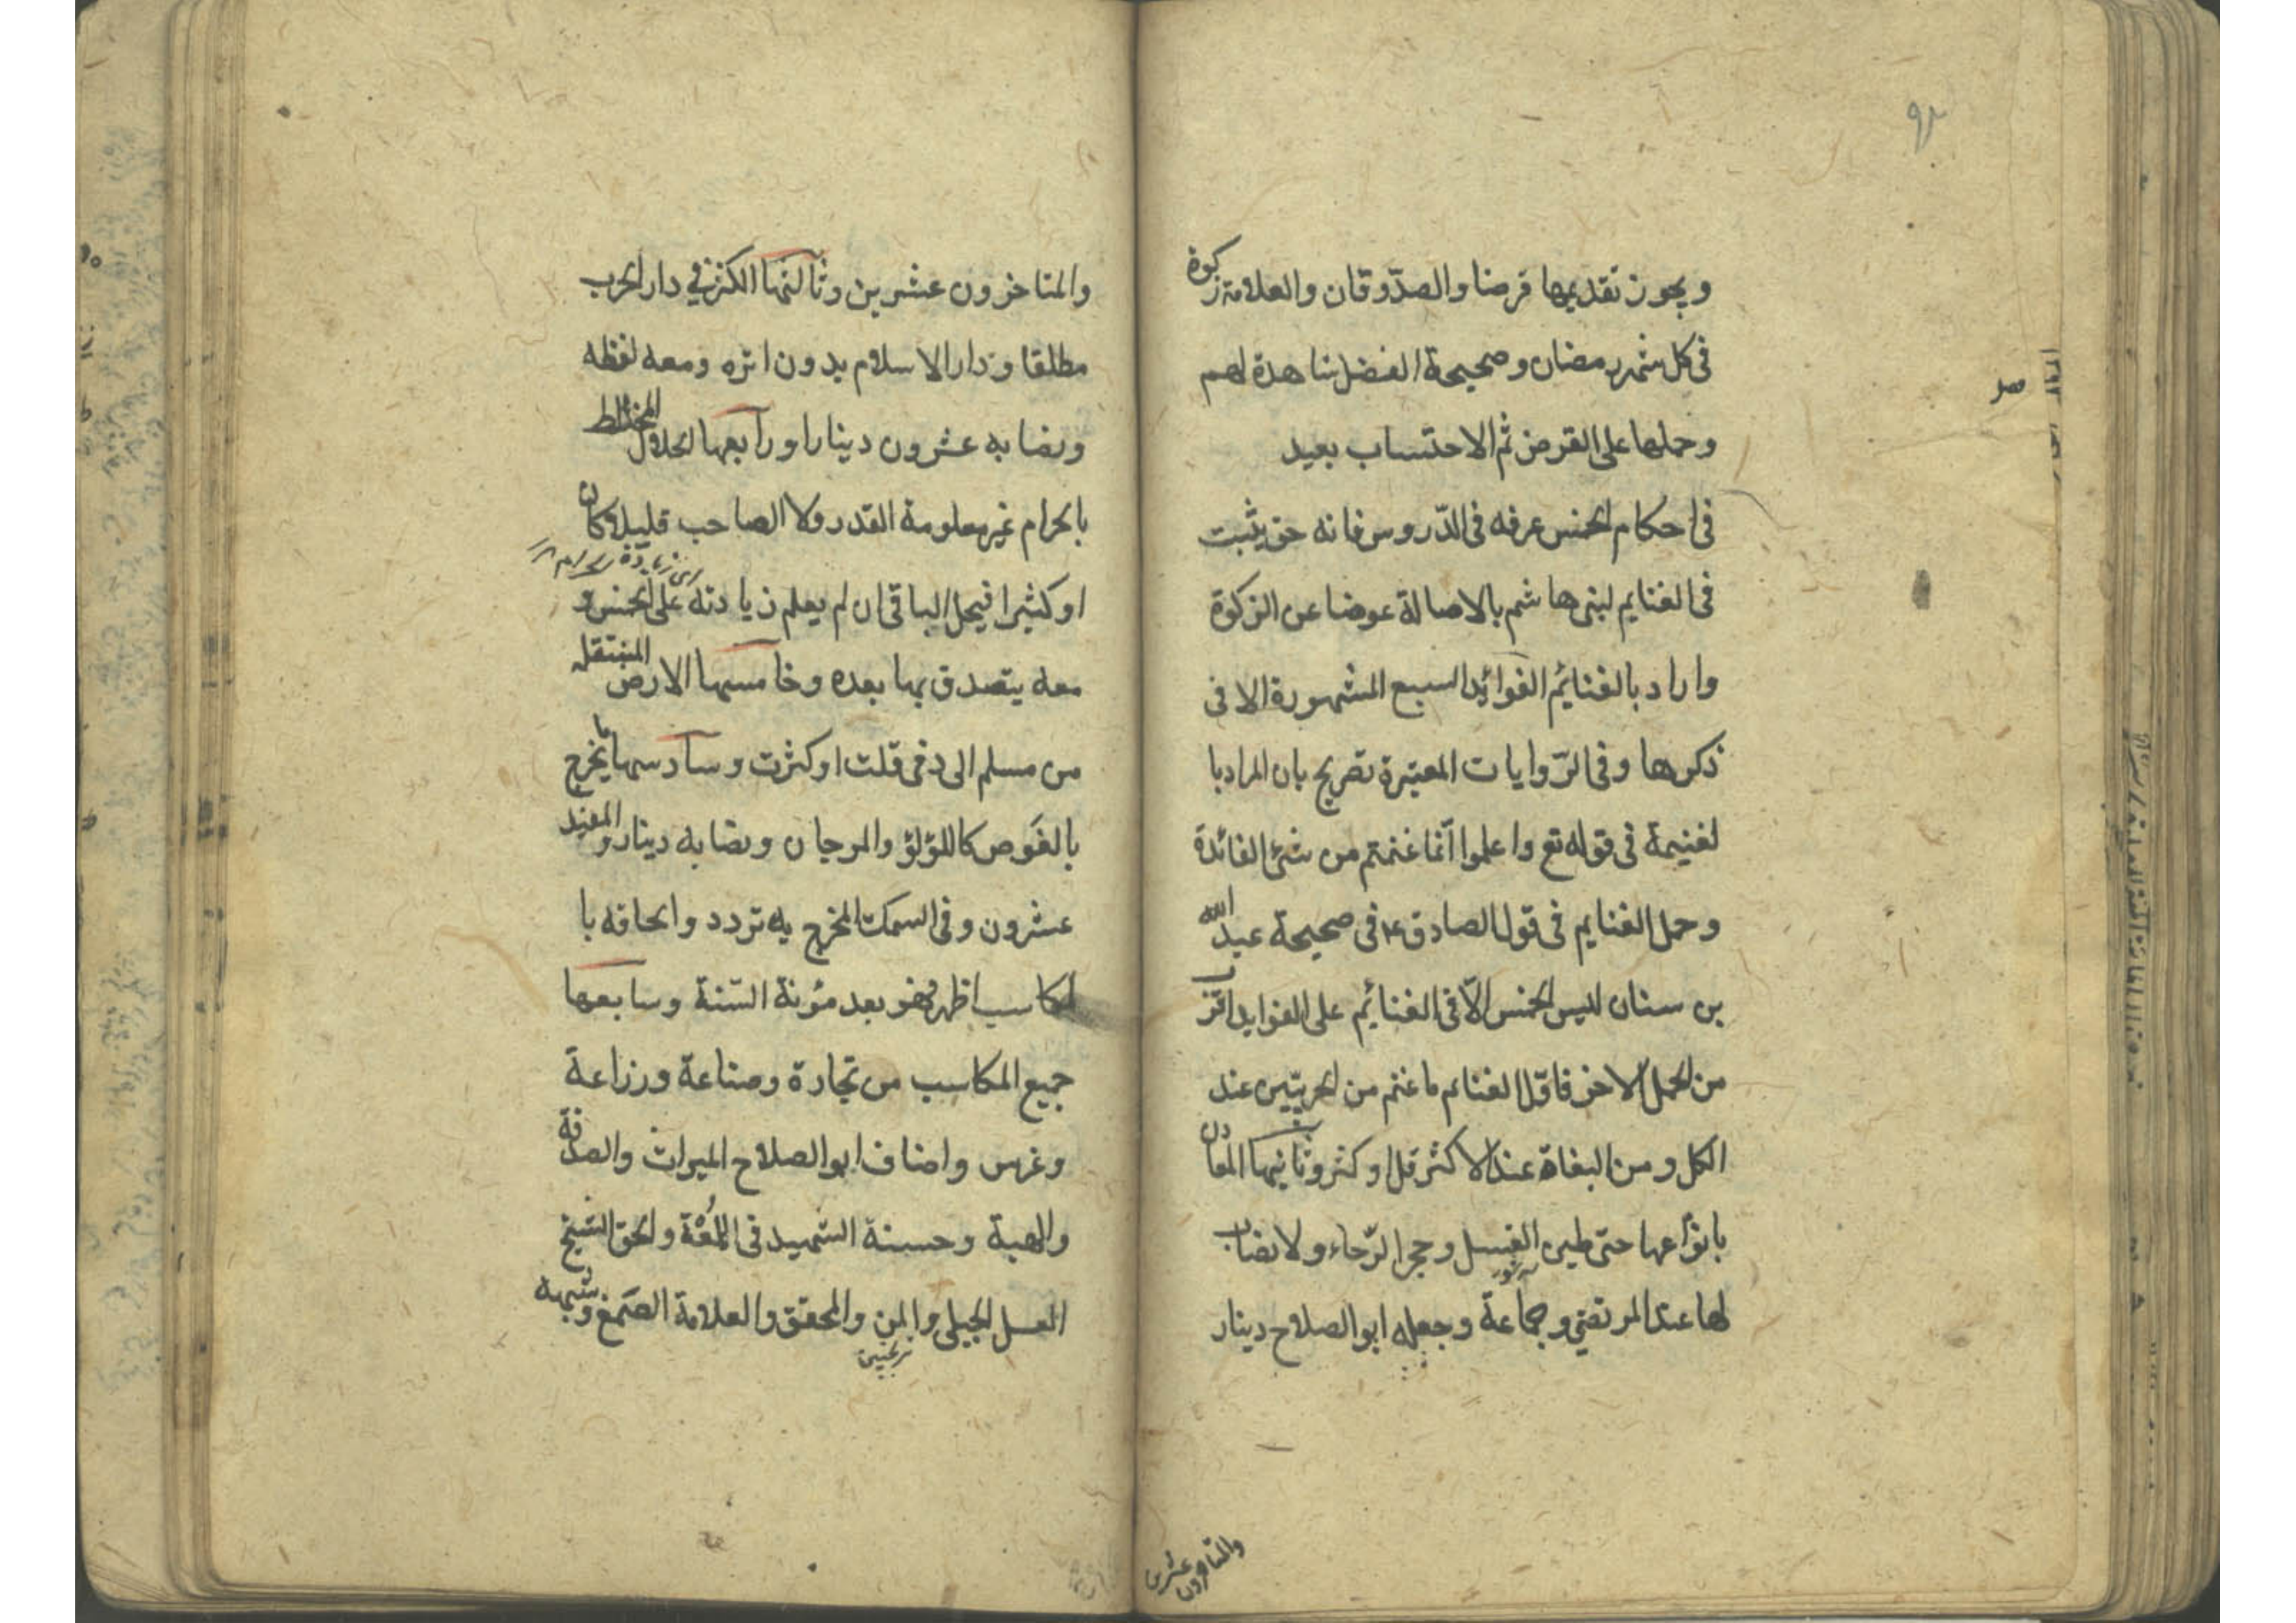 ٩٢
ويجوز تقديمها قرضا والصدّوقان والعلامة زكوة
فى كل شهر رمضان وصحيحة الفضل شاهدة لهم
وحملها على القرض ثم الاحتساب بعيد
فى احكام الخمس عرفه فى الدّروس فانه حق يثبت
فى الغنايم لبنى هاشم بالاصالة عوضا عن الزكوة
واراد بالغنائم الفوائد السبع المشهورة الاتى
ذكرها وفى الرّوايات المعتبرة تصريح بان المراد با
لغنيمة فى قوله تع واعلموا انّما غنمتم من شئ الفائدة
وحمل الغنايم فى قول الصادق ع فى صحيحة عبد الله
بن سنان ليس الخمس الّا فى الغنائم على الفوايد اقرب
من الحمل الاخر فاوّل الغنايم ما غنم من الحربيّين عند
الكل ومن البغاة عند الاكثر قل او كثر وثانيها المعادن
بانواعها حتى طين الغسل وحجر الرّحاء ولا نصاب
لها عند المرتضى وجماعة وجعله ابو الصلاح دينار
والمتاخرون عشرين
والمتاخرون عشرين وثالثها الكنز فى دار الحرب
مطلقا ودار الاسلام بدون اثره ومعه لقطه
ونصابه عشرون دينارا ورابعها الحلال المختلط
بالحرام غير معلومة القدر ولا الصاحب قليلا كان
او كثيرا فيحل الباقى ان لم يعلم زيادته على الخمس و
معه يتصدق بها بعده وخامسها الارض المنتقل
من مسلم الى ذمى قلت او كثرت وسادسها ما يخرج
بالغوص كاللؤلؤ والمرجان ونصابه دينار والمفيد
عشرون وفى السمك المخرج به تردد والحاقه با
لمكاسب اظهر فهو بعد مؤنة السّنة وسابعها
جميع المكاسب من تجارة وصناعة وزراعة
وغرس واضاف ابو الصلاح الميراث والصدقة
والهبة وحسنة الشهيد فى اللمعة والحق الشيخ
العسل الجبلى والمن والمحقق والعلامة الصمغ وشبهه
ترنجبين